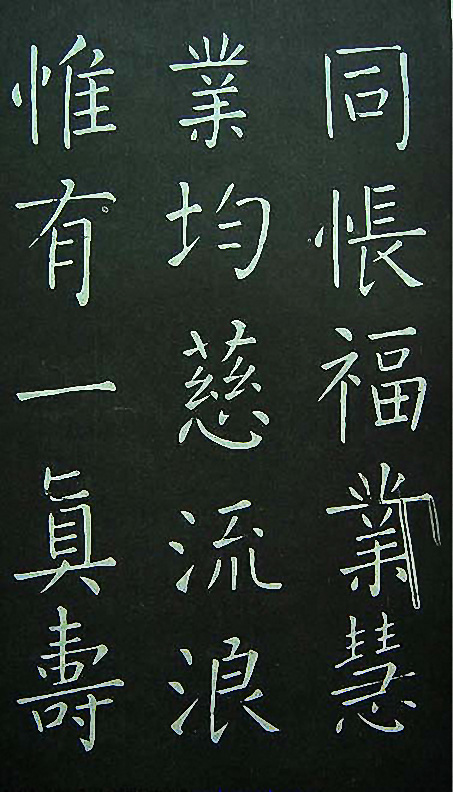 同悵福業慧
業均慈流浪
惟有一眞壽